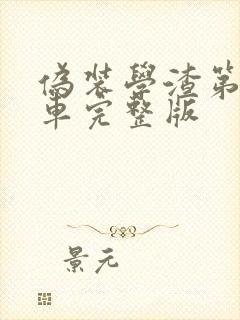 偽裝學渣第
車完整版
景元